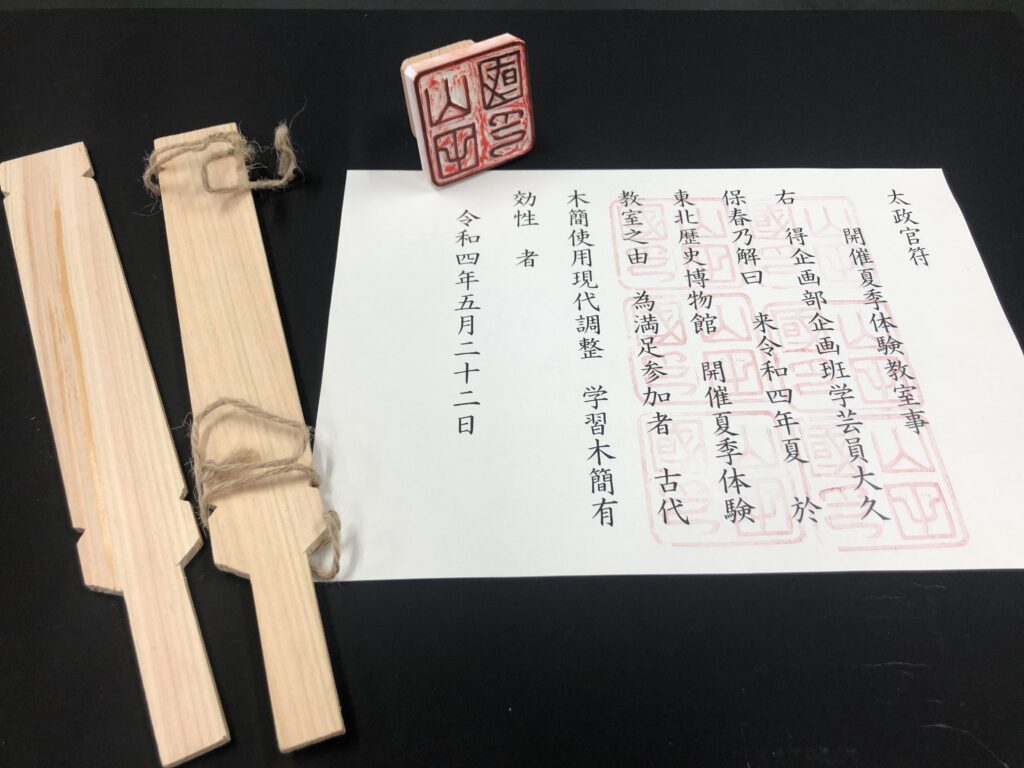 太政官符
開催夏季体験教室事
右 得企画部企画班学芸員大久
保春乃解曰 来令和四年夏 於
東北歴史博物館 開催夏季体験
教室之由 為満足参加者 古代
木簡使用現代調整 学習木簡有
効性 者
令和四年五月二十二日